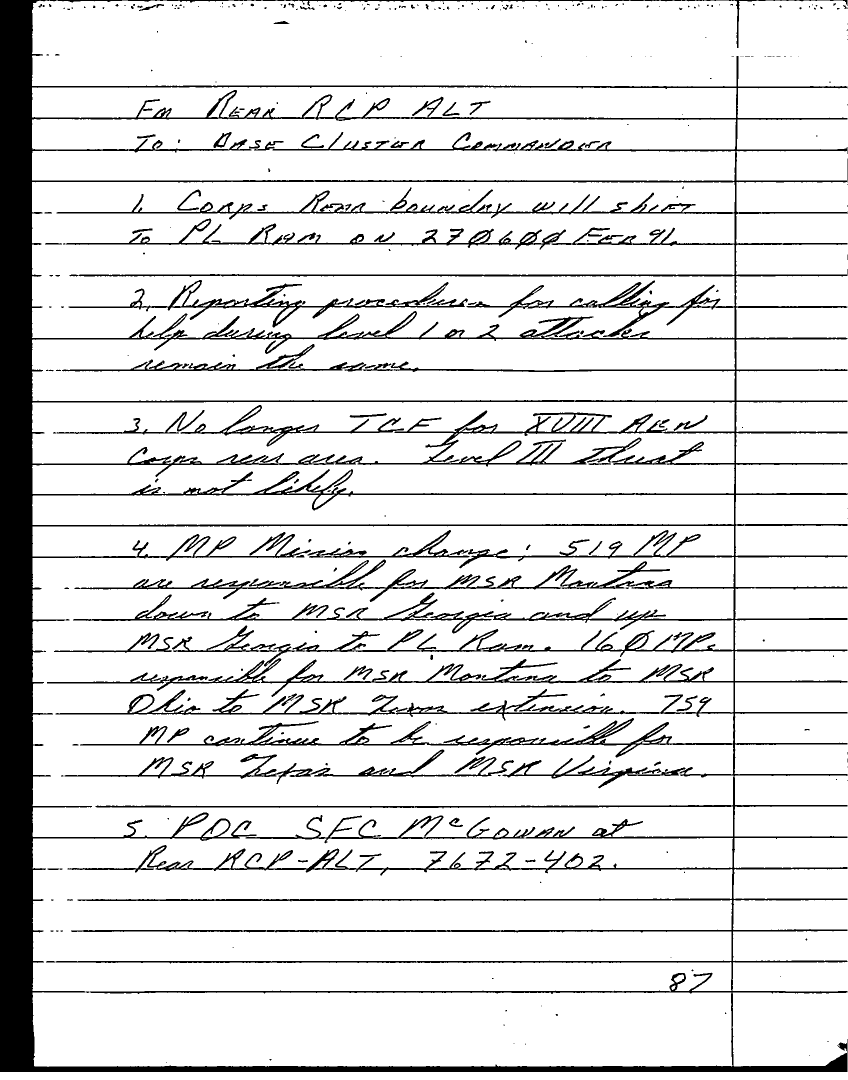 Fm Rear RCP ALT
To: Base Cluster Commander
1. Corps Rear boundry will shift
to PL Ram on 27Ø6ØØ Feb 91.
2. Reporting procedures for calling for
help during level 1 or 2 attacks
remain the same.
3. No longer TCF for XVIII ABN
Corps rear area. Level III threat
is not likely.
4. MP Mission change; 519 MP
are responsible for MSR Montana
down to MSR Georgia and up
MSR Georgia to PL Ram. 16Ø MPs
responsible for MSR Montana to MSR
Ohio to MSR Texas extension. 759
MP continue to be responsible for
MSR Texas and MSR Virginia.
5. POC SFC McGowan at
Rear RCP-ALT, 7672-402.
87